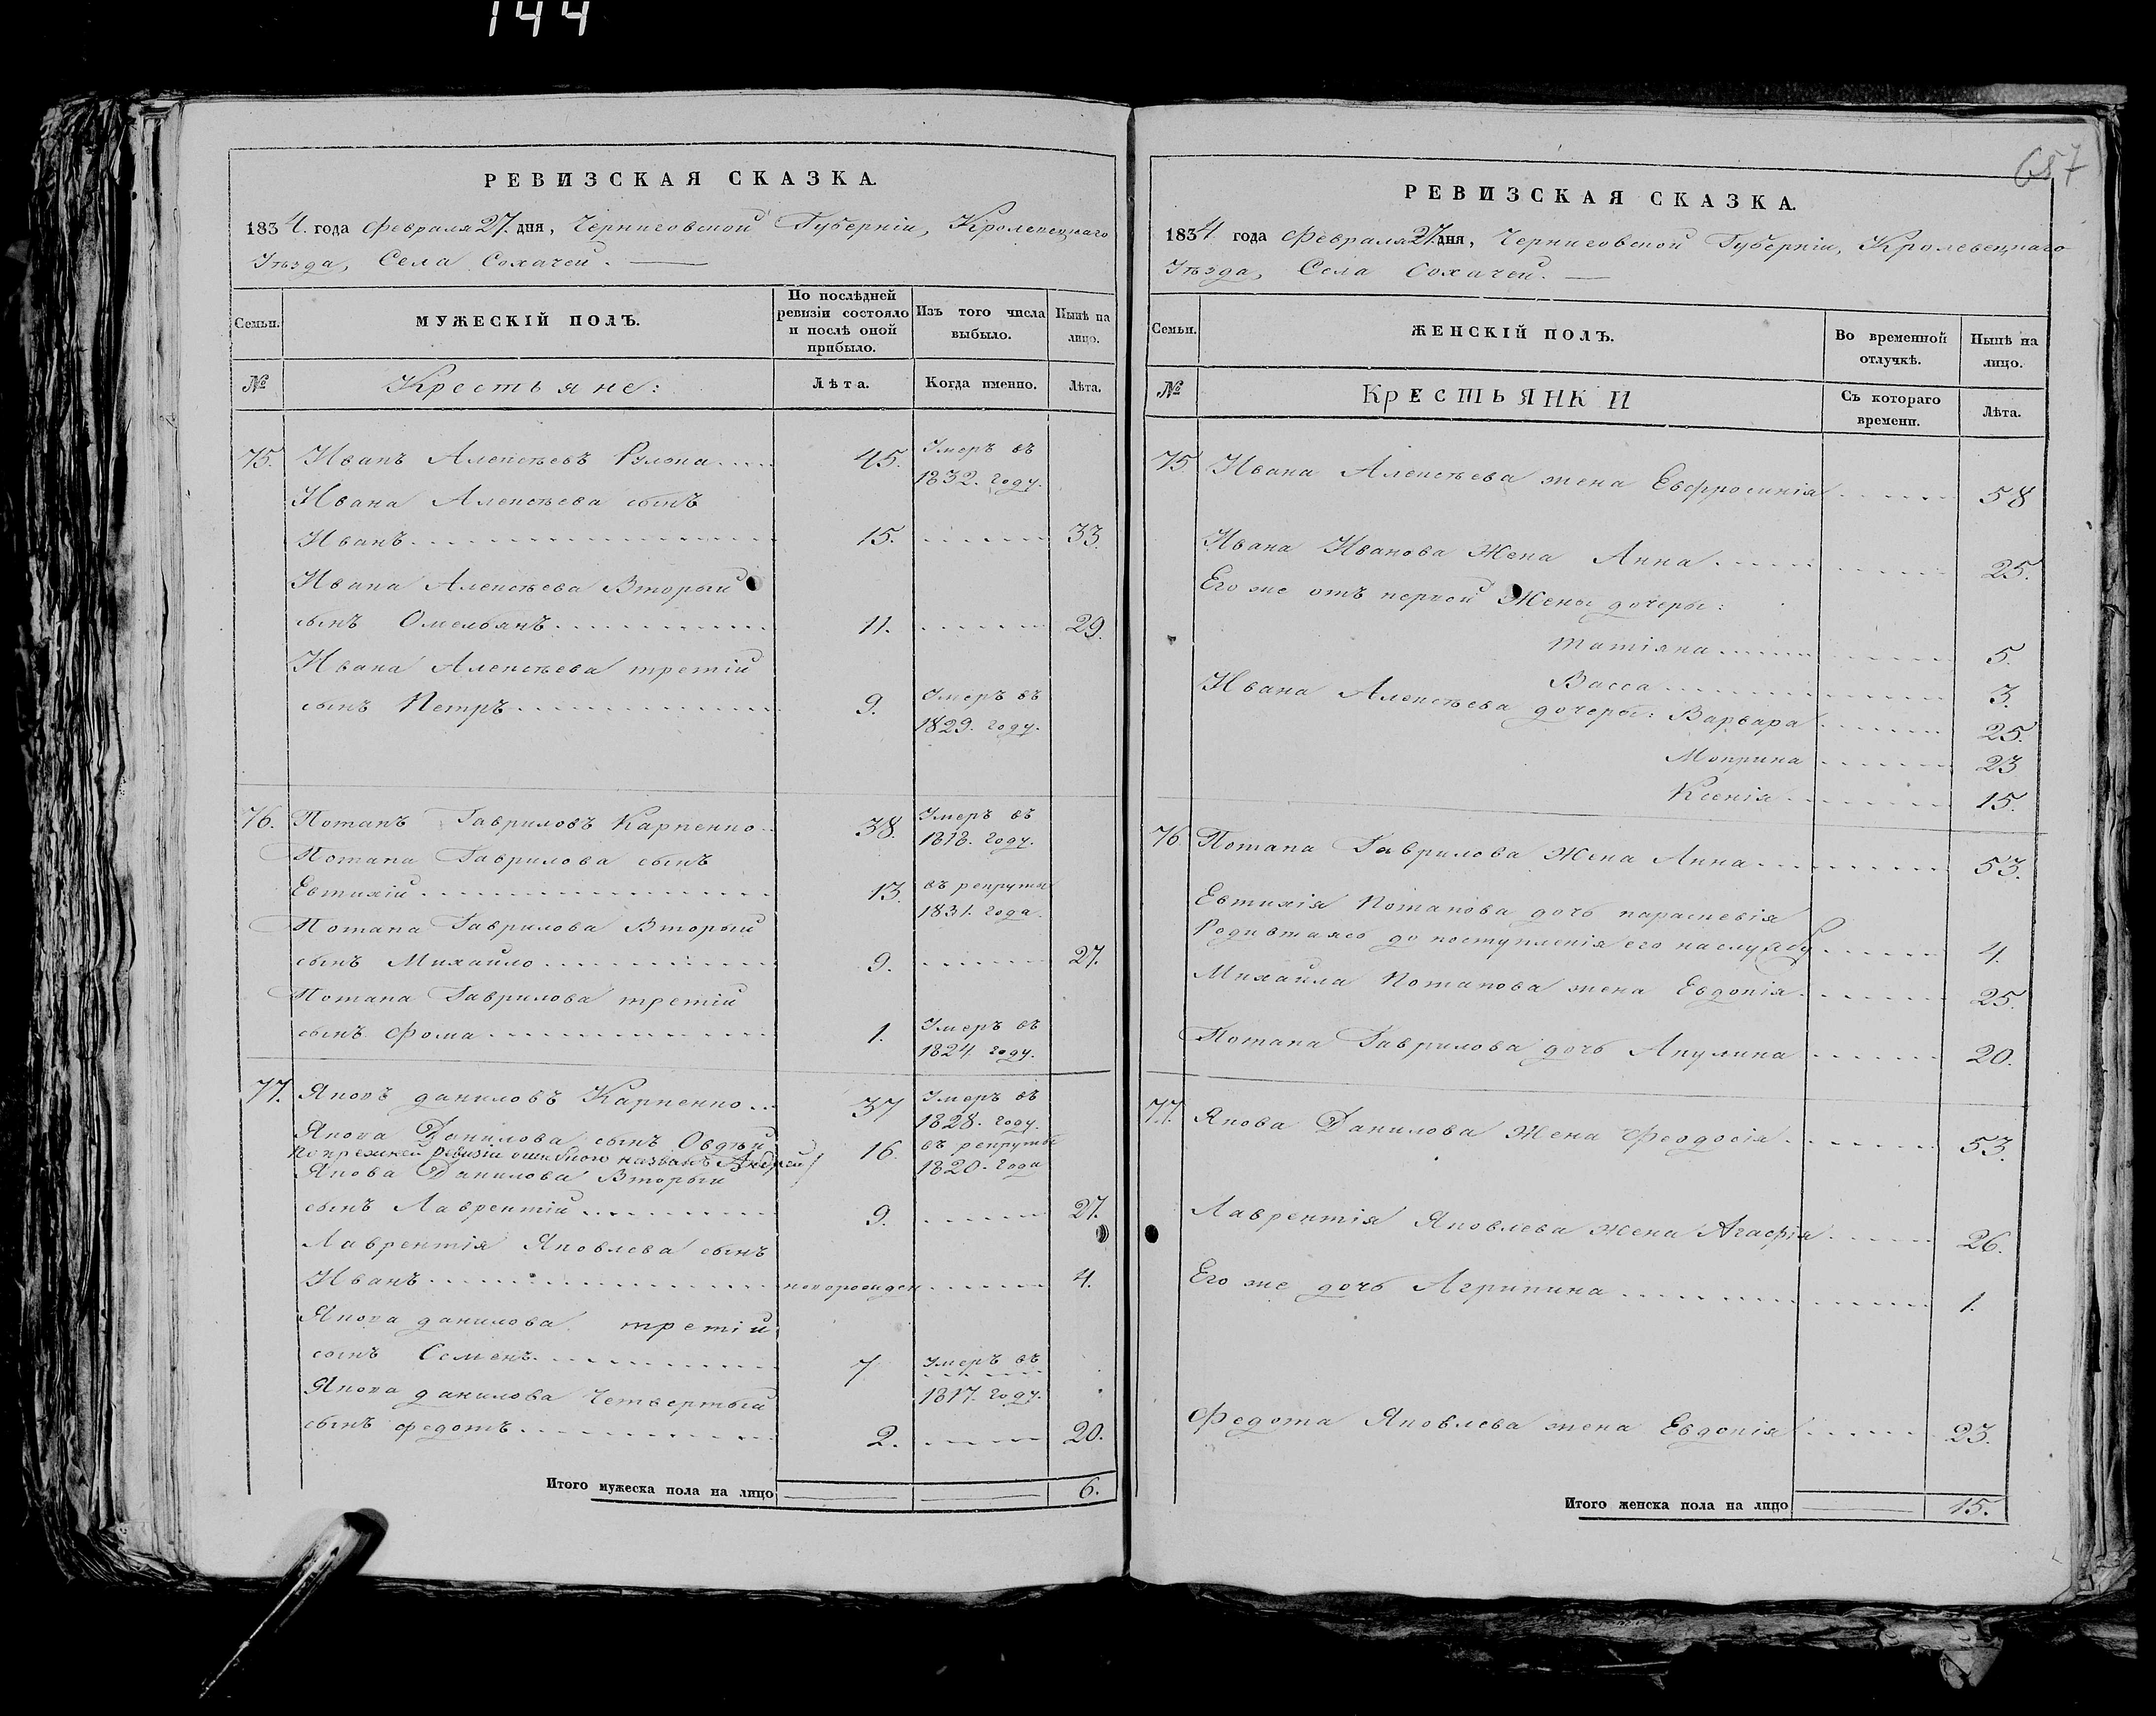 144
657
РЕВИЗСКАЯ СКАЗКА.
1834. года Февраля 27. дня, Черниговской Губерніи, Кролевецкаго
Уѣзда, Села Сохачей.
Семьи.
МУЖЕСКІЙ ПОЛЪ.
По послѣдней ревизіи состояло и послѣ оной прибыло.
Изъ того числа выбыло.
Нынѣ на лицо.
№
Крестьяне:
Лѣта.
Когда именно.
Лѣта.
75. Иванъ Алексѣевъ 45. Умеръ въ
1832. году.
Ивана Алексѣева сынъ
Иванъ 15. 33.
Ивана Алексѣева Вторый
сынъ Омельянъ 11. 29.
Ивана Алексѣева третій
сынъ Петръ 9. Умеръ въ
1829. году.
76. Потапъ Гавриловъ Карпенко 38. Умеръ въ
1818. году.
Потапа Гаврилова сынъ
Евтихій 13. въ рекруты
1831. года.
Потапа Гаврилова Вторый
сынъ Михайло 9. 27.
Потапа Гаврилова третій
сынъ Фома 1. Умеръ въ
1824. году.
77. Яковъ даниловъ Карпенко 37 Умеръ въ
1828. году.
Якова Данилова сынъ Овдѣй 16. въ рекруты
попрежней Ревизіи ошибкою названъ Андрей 1820. года
Якова Данилова Вторый
сынъ Лаврентій 9. 27.
Лаврентія Яковлева сынъ
Иванъ новорожден 4.
Якова данилова третій
сынъ Семенъ 7 Умеръ въ
1817. году.
Якова данилова Четвертый
сынъ федотъ 2. 20.
Итого мужеска пола на лицо 6.
РЕВИЗСКАЯ СКАЗКА.
1834 года Февраля 27 дня, Черниговской Губерніи, Кролевецкаго
Уѣзда, Села Сохачей.
Семьи.
ЖЕНСКІЙ ПОЛЪ.
Во временной отлучкѣ.
Нынѣ на лицо.
№
КРЕСТЬЯНКИ
Съ котораго времени.
Лѣта.
75. Ивана Алексѣева жена Евфросинія 58
Ивана Иванова Жена Анна 25.
Его же отъ первой Жены дочеры:
Татіяна 5.
Васса 3.
Ивана Алексѣева дочеры: Варвара 25.
Мокрина 23
Ксенія 15.
76. Потапа Гаврилова Жена Анна 53.
Евтихія Потапова дочь параскевія
Родившаясь до поступленія его наслужбу 4.
Михайла Потапова жена Евдокія 25.
Потапа Гаврилова дочь Акулина 20.
77. Якова Данилова Жена Феодосія 53.
Лаврентія Яковлева Жена Агафія 26.
Его же дочь Агрипина 1.
Федота Яковлева жена Евдокія 23.
Итого женска пола на лицо 15.